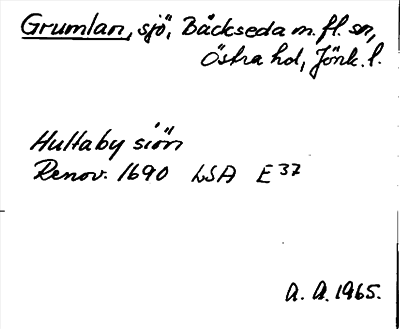 Grumlan, sjö, Bäckseda m. fl. sn,
Östra hd, Jönk. l.
Hultaby siön
Renov. 1690 LSA E 37
A. A. 1965.